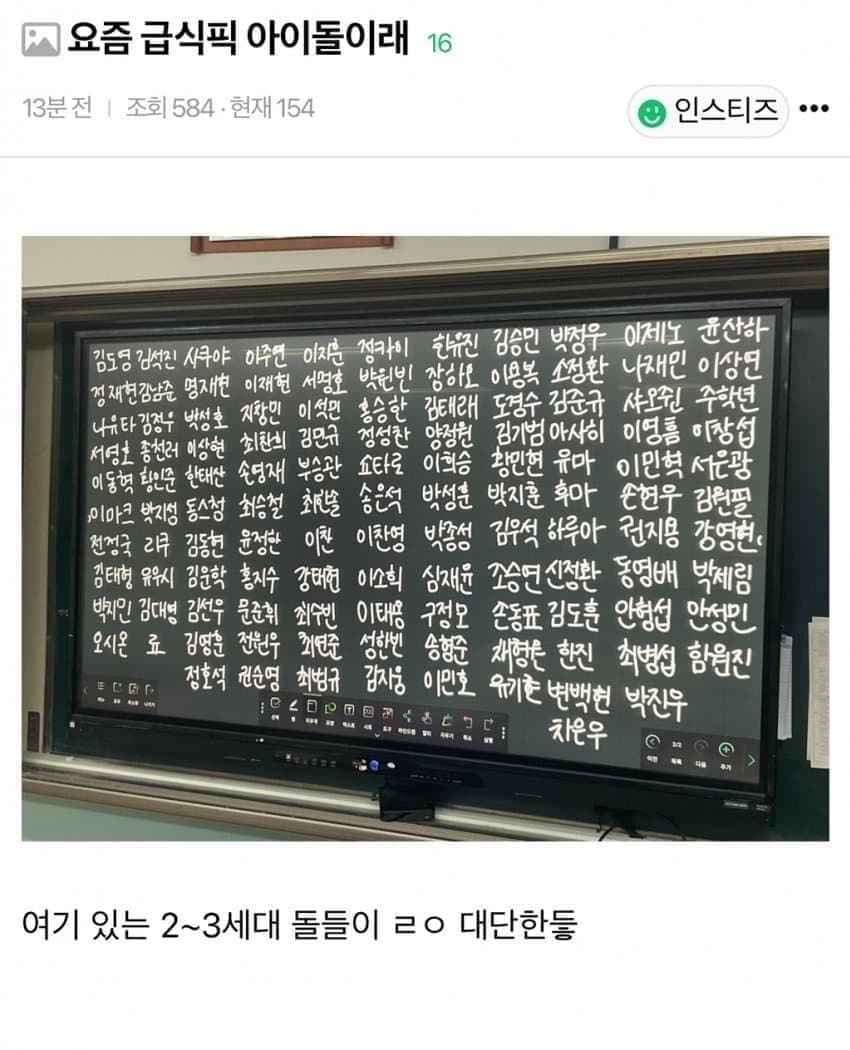 요즘 급식픽 아이돌이래 16
13분 전 | 조회 584 · 현재 154
인스티즈 •••
김도영 김석진 사쿠야 이주연 이지훈 정카이 한유진 김승민 박정우 이제노 윤산하
정재현 김남준 명재현 이재현 서명호 박원빈 장하오 이용복 소정환 나재민 이상연
나유타 김정우 박성호 지창민 이석민 홍승한 김태래 도경수 김준규 샤오쥔 주학년
서영호 종천러 이상현 최찬희 김민규 정성찬 양정원 김기범 아사히 이영흠 이창섭
이동혁 황인준 한태산 손영재 부승관 쇼타로 이희승 황민현 유마 이민혁 서은광
이마크 박지성 동스청 최승철 최한솔 송은석 박성훈 박지훈 후마 손현우 김원필
전정국 리쿠 김동현 윤정한 이찬 이찬영 박종성 김우석 하루아 권지용 강영현
김태형 유우시 김운학 홍지수 강태현 이소희 심재윤 조승연 신정환 동영배 박제림
박지민 김대영 김선우 문준휘 최수빈 이태용 구정모 손동표 김도훈 안형섭 안성민
오시온 료 김영훈 전원우 최연준 성한빈 송형준 채형원 한진 최병섭 함원진
정호석 권순영 최범규 김지웅 이민호 유기현 변백현 박진우
차은우
선택 펜 지우개 도형 텍스트 시트 도구 마인드맵 멀티 지우기 취소 실행
이전 2/2 목록 다음 추가
여기 있는 2~3세대 돌들이 ㄹㅇ 대단한듷